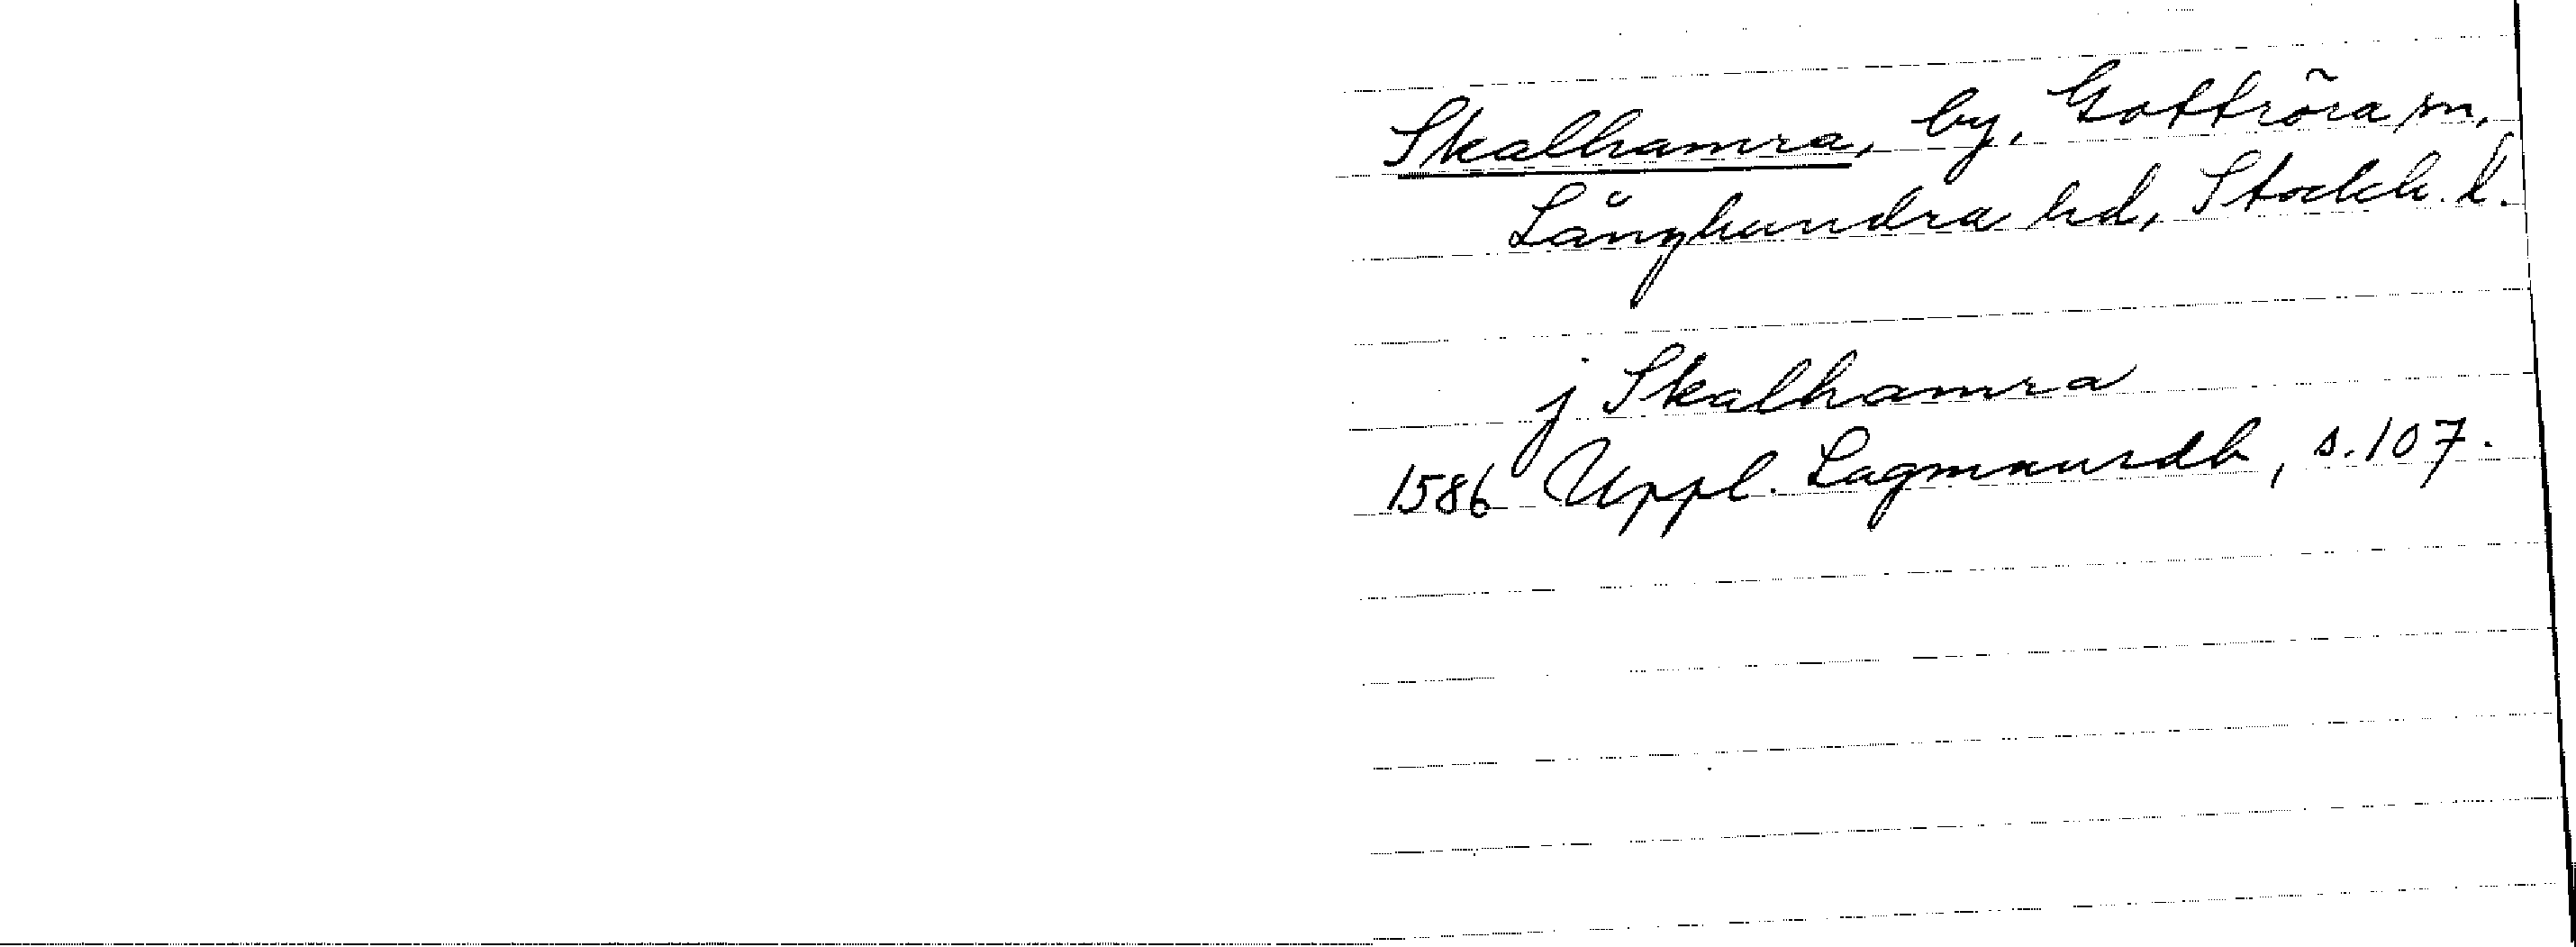 Skalhamra, by, Gottröra sn,
Långhundra hd, Stockh. l.
j Skalhamra
1586 Uppl. Lagmansdb, s. 107.